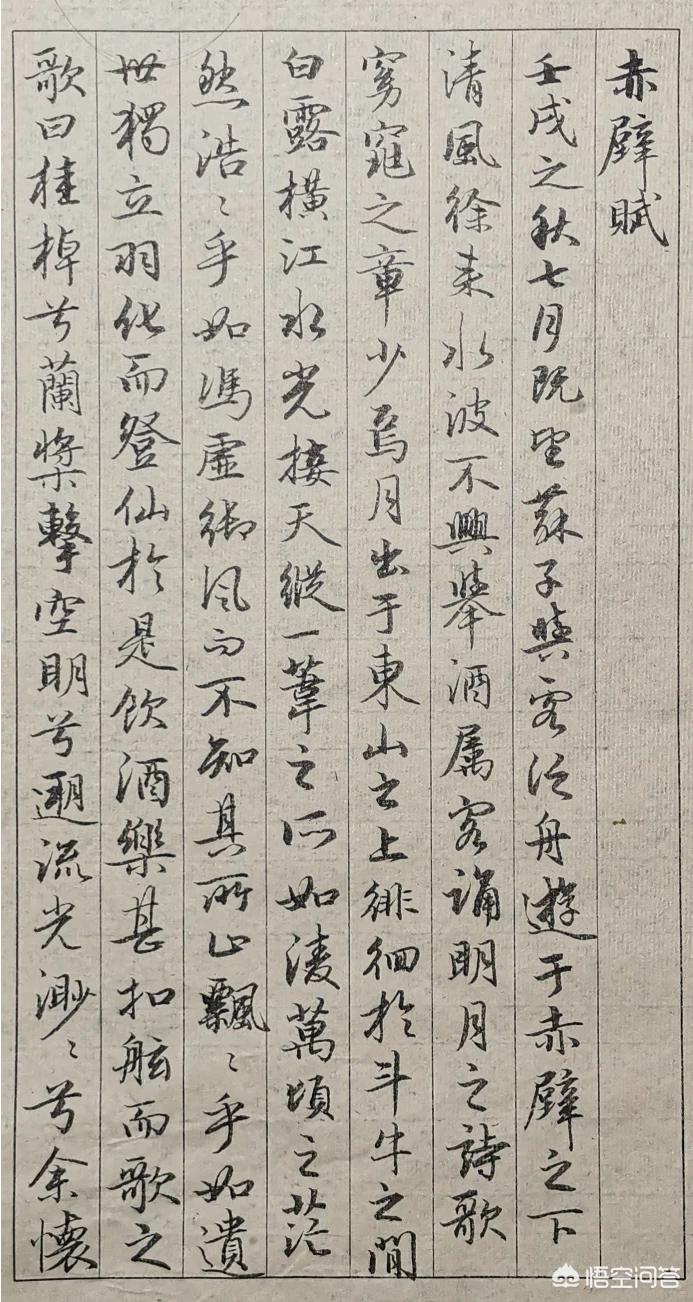 赤壁賦
壬戌之秋七月既望蘇子與客泛舟遊于赤壁之下
清風徐来水波不興舉酒属客誦明月之詩歌
窈窕之章少焉月出于東山之上徘徊於斗牛之間
白露横江水光接天縱一葦之所如淩萬頃之茫
然浩〻乎如馮虛御風而不知其所止飄〻乎如遺
世獨立羽化而登仙於是飲酒樂甚扣舷而歌之
歌曰桂棹兮蘭槳擊空明兮遡流光渺〻兮余懷
悟空问答